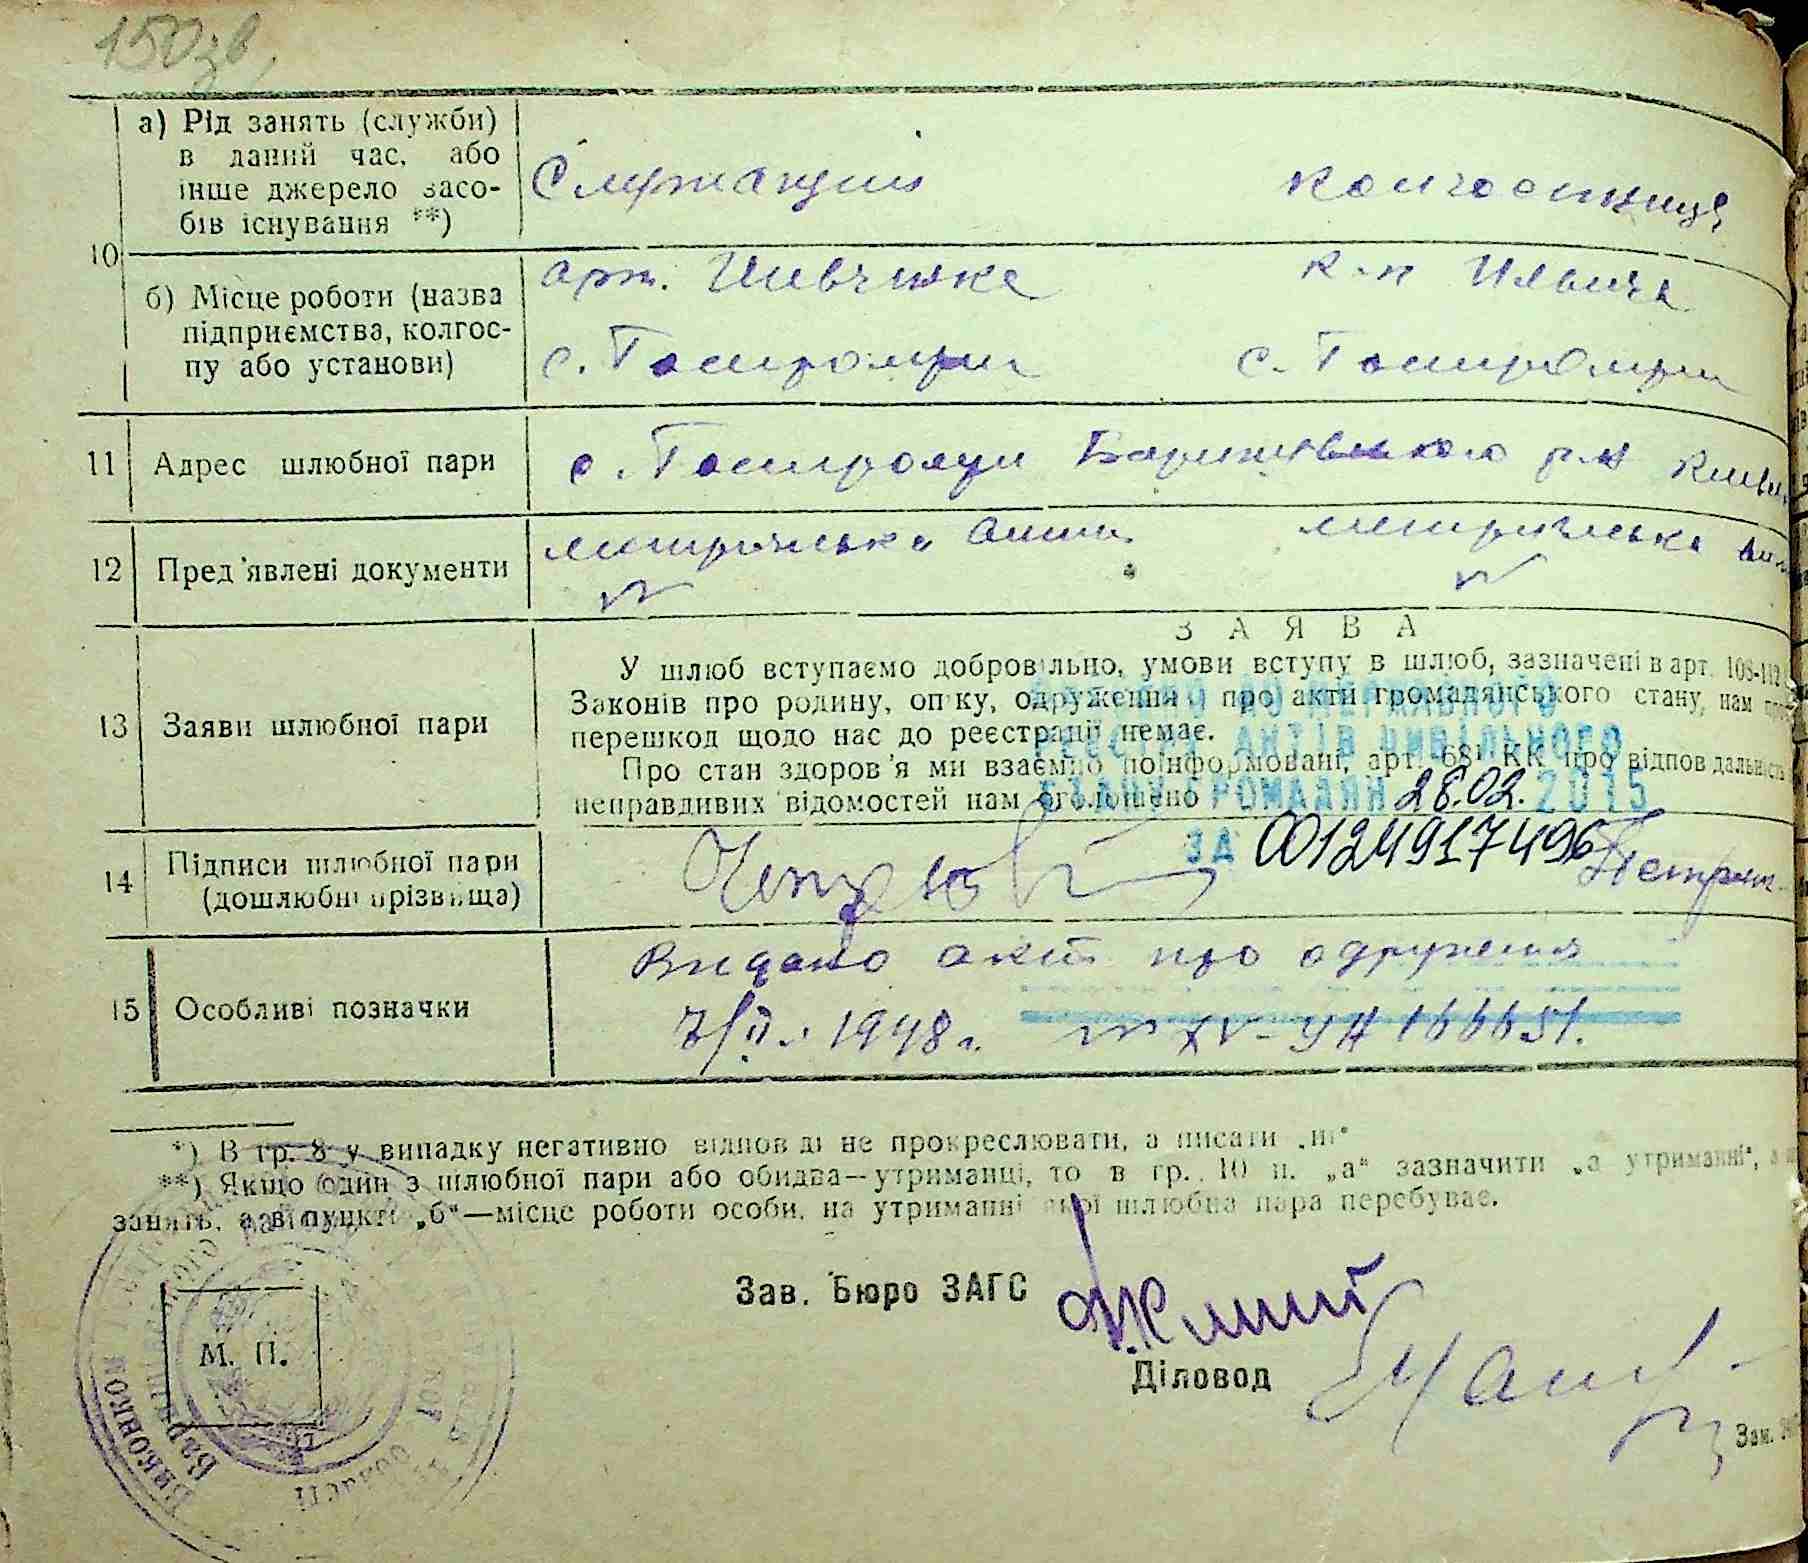 150зв
а) Рід занять (служби)
в даний час, або
інше джерело засо-
бів існування **)
Служащий
колгоспниця
10
б) Місце роботи (назва
підприємства, колгос-
пу або установи)
арт. Шевченка
к-п Ильича
с. Гостролуччя
с. Гостролуччя
11 Адрес шлюбної пари
с. Гостролуччя Баришівського р-н Київ
12 Пред'явлені документи
метрична
метрична
ЗАЯВА
13 Заяви шлюбної пари
У шлюб вступаємо добровільно, умови вступу в шлюб, зазначені в арт. 108-112
Законів про родину, опіку, одруження і про акти громадянського стану, нам
перешкод щодо нас до реєстрації немає.
Про стан здоров'я ми взаємно поінформовані, арт. 68¹ КК про відповідальність
неправдивих відомостей нам оголошено
ДО ДЕРЖАВНОГО
РЕЄСТРУ АКТІВ ЦИВІЛЬНОГО
СТАНУ ГРОМАДЯН 28.02.2015
ЗА 00124917496
14 Підписи шлюбної пари
(дошлюбні прізвища)
15 Особливі позначки
Видано акт про одруження
7/II. 1948 г. № XV-УН 166651.
*) В гр. 8 у випадку негативно відповіді не прокреслювати, а писати „ні“
**) Якщо один з шлюбної пари або обидва—утриманці, то в гр. 10 п. „а“ зазначити „а утриманні“,
занять, а в пункті „б“—місце роботи особи, на утриманні якої шлюбна пара перебуває.
Зав. Бюро ЗАГС
М. П.
Діловод
Виконком
області
Зам.